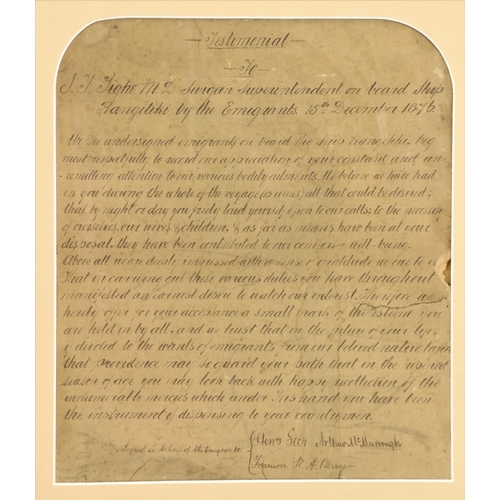 Testimonial
To
J. T. Tighe M D Surgeon Superintendent on board Ship
Rangitiki by the Emigrants 15th December 1876.
We the undersigned emigrants on board the Ship Rangitiki, beg
most respectfully to record our appreciation of your constant and un-
remitting attention to our various bodily ailments. We believe we have had
in you during the whole of the voyage all that could be desired;
that by night or day you freely laid yourself open to our calls; to the
of ourselves, our wives & children, & as far as means have been at your
disposal, they have been contributed to our comfort & well-being.
Above all we are deeply impressed with a sense of gratitude we owe to you
That in carrying out these various duties you have throughout
manifested an earnest desire to watch our interest. Therefore we
hereby offer for your acceptance a small mark of the esteem you
are held in by all; and we trust that in the future of your life
devoted to the wants of emigrants from our beloved native land
that providence may so guard your path that in the
season of age you may look back with happy recollection of the
innumerable mercies which under His hand you have been
the instrument of dispensing to your countrymen.
Signed in behalf of the Emigrants
Hony Secr Arthur McMurrough
Treasurer R. A.